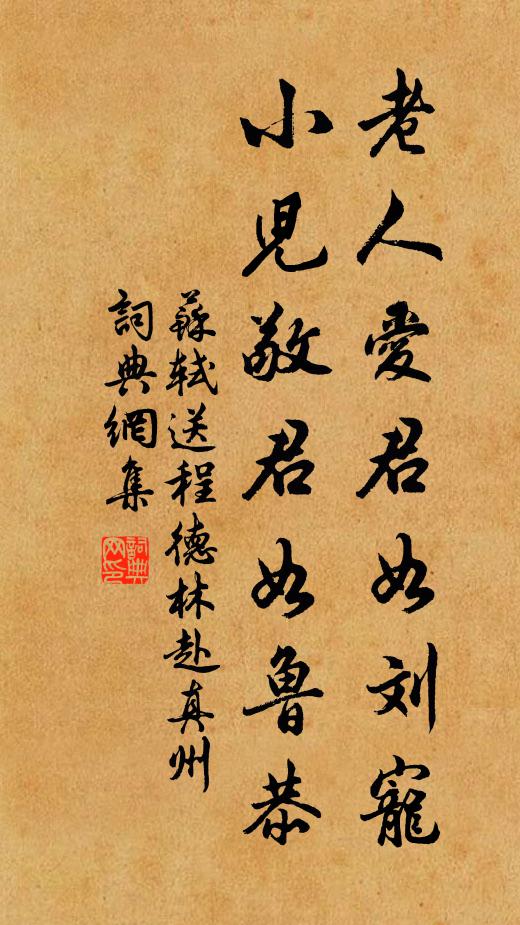 老人愛君如刘寵
小兒敬君如魯恭
蘇軾送程德林赴真州
詞典網集
詞典网印